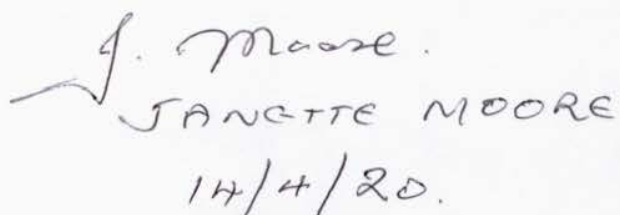 J. Moore.
JANETTE MOORE
14/4/20.